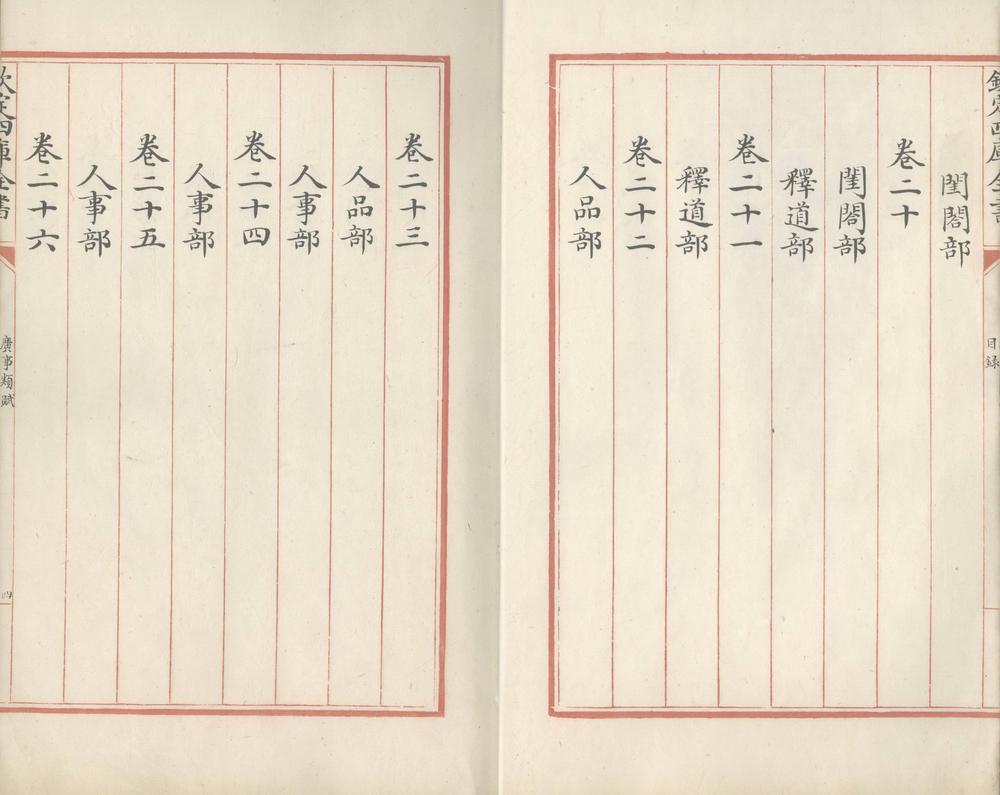 欽定四庫全書
目録
閨閤部
卷二十
閨閤部
釋道部
卷二十一
釋道部
卷二十二
人品部
卷二十三
人品部
人事部
卷二十四
人事部
卷二十五
人事部
卷二十六
欽定四庫全書
廣事類賦
四